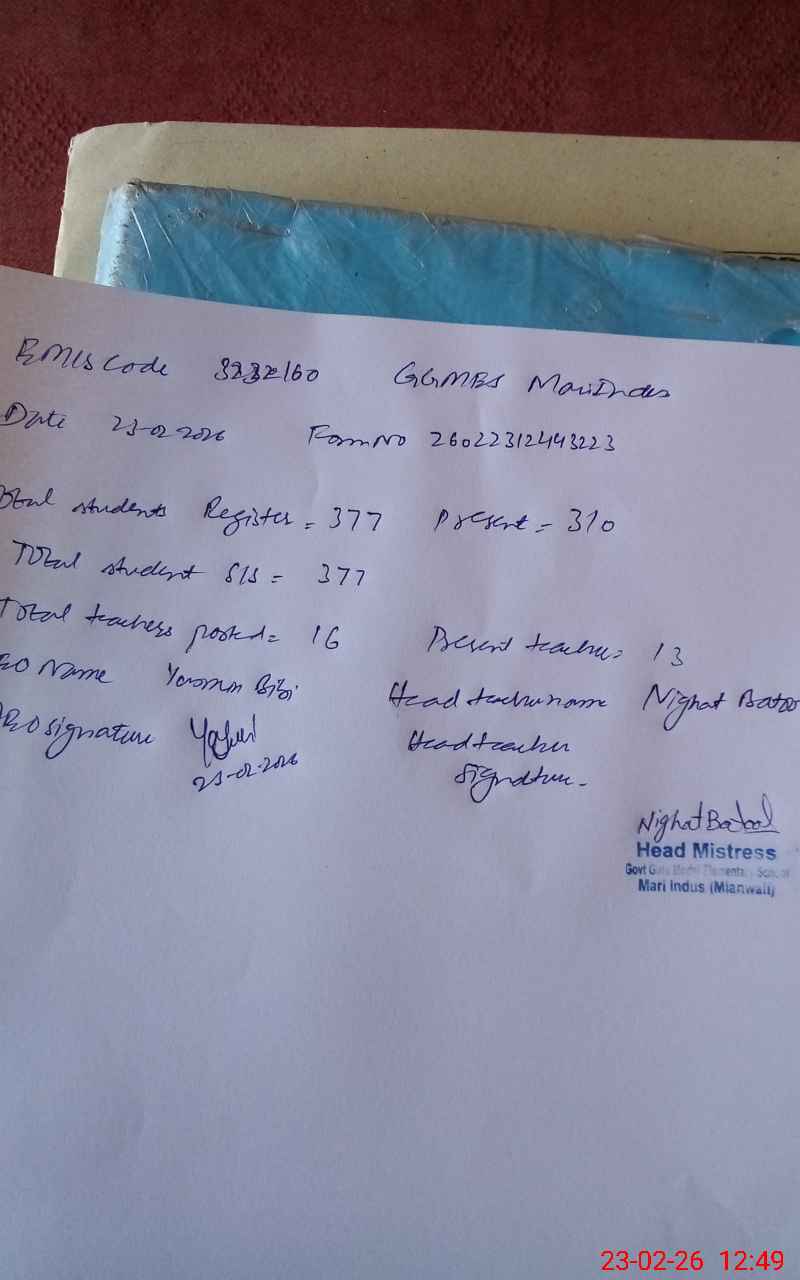 EMIS Code 3232160 GGMES Mari Indus
Date 23-02-2026 Form No 26022312443223
Total students Register = 377 Present = 310
Total student SIS = 377
Total teachers posted = 16 Present teacher = 13
EO Name Yasmin Bibi Head teacher name Nighat Batoo
AEO signature
23-02-2026
Head teacher
Signature -
Nighat Batool
Head Mistress
Govt Girls Model Elementary School
Mari Indus (Mianwali)
23-02-26 12:49